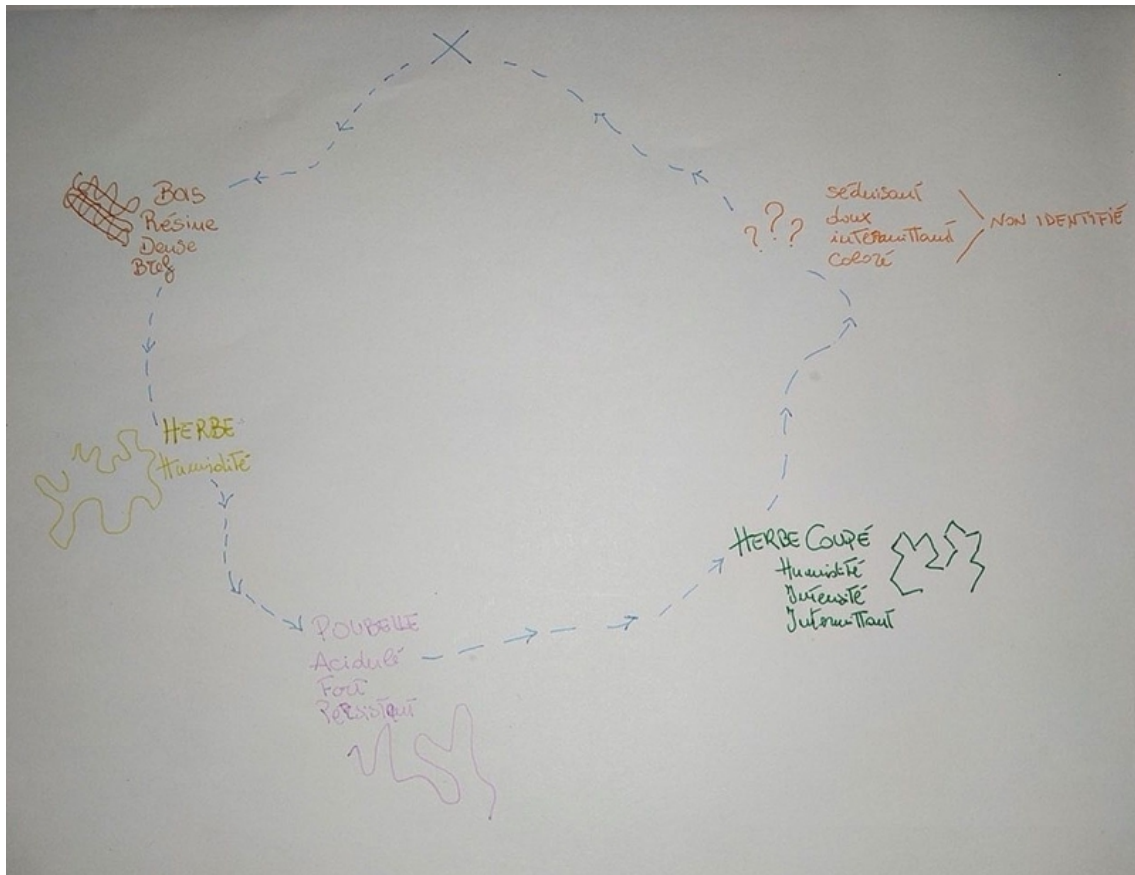 Bois
Résine
Dense
Bref
HERBE
Humidité
POUBELLE
Acidulé
Fort
Persistant
HERBE COUPÉ
Humidité
Intensité
Intermittant
???
séduisant
doux
intermittant
coloré
NON IDENTIFIÉ